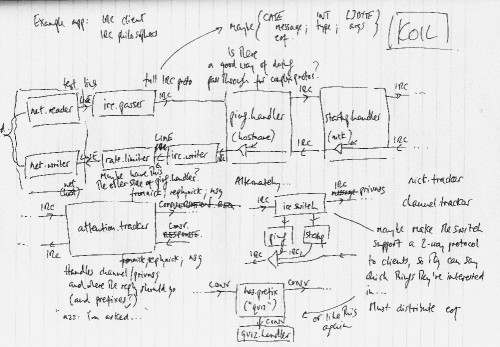 Example app: IRC client
IRC philosophers
Maybe { CASE message; INT type; []BYTE args }
eof
KOIL
Is there
a good way of doing
pass through for complex protos.
text line
full IRC proto
net.reader
LINE
irc.parser
IRC
ping.handler
(hostname)
IRC
startup.handler
(nick)
IRC
...
net.writer
LINE
rate.limiter
LINE
irc.writer
IRC
IRC
IRC
...
Maybe have this
the other side of ping.handler?
from nick, replynick, msg
IRC
attention.tracker
IRC
CONV
CONV.
RESPONSE.
fromnick, replynick, msg
Handles channel/privmsg
and where the reply should go
(and prefixes?)
"azz: I'm asked..."
Alternately...
IRC
irc.switch
IRC
privmsg
ping
startup
IRC
IRC
nick.tracker
channel.tracker
Maybe make the switch
support a 2-way protocol
to clients, so they can say
which things they're interested
in...
Must distribute eof
CONV
has.prefix
("quiz")
CONV
CONV
quiz.handler
or like this
again